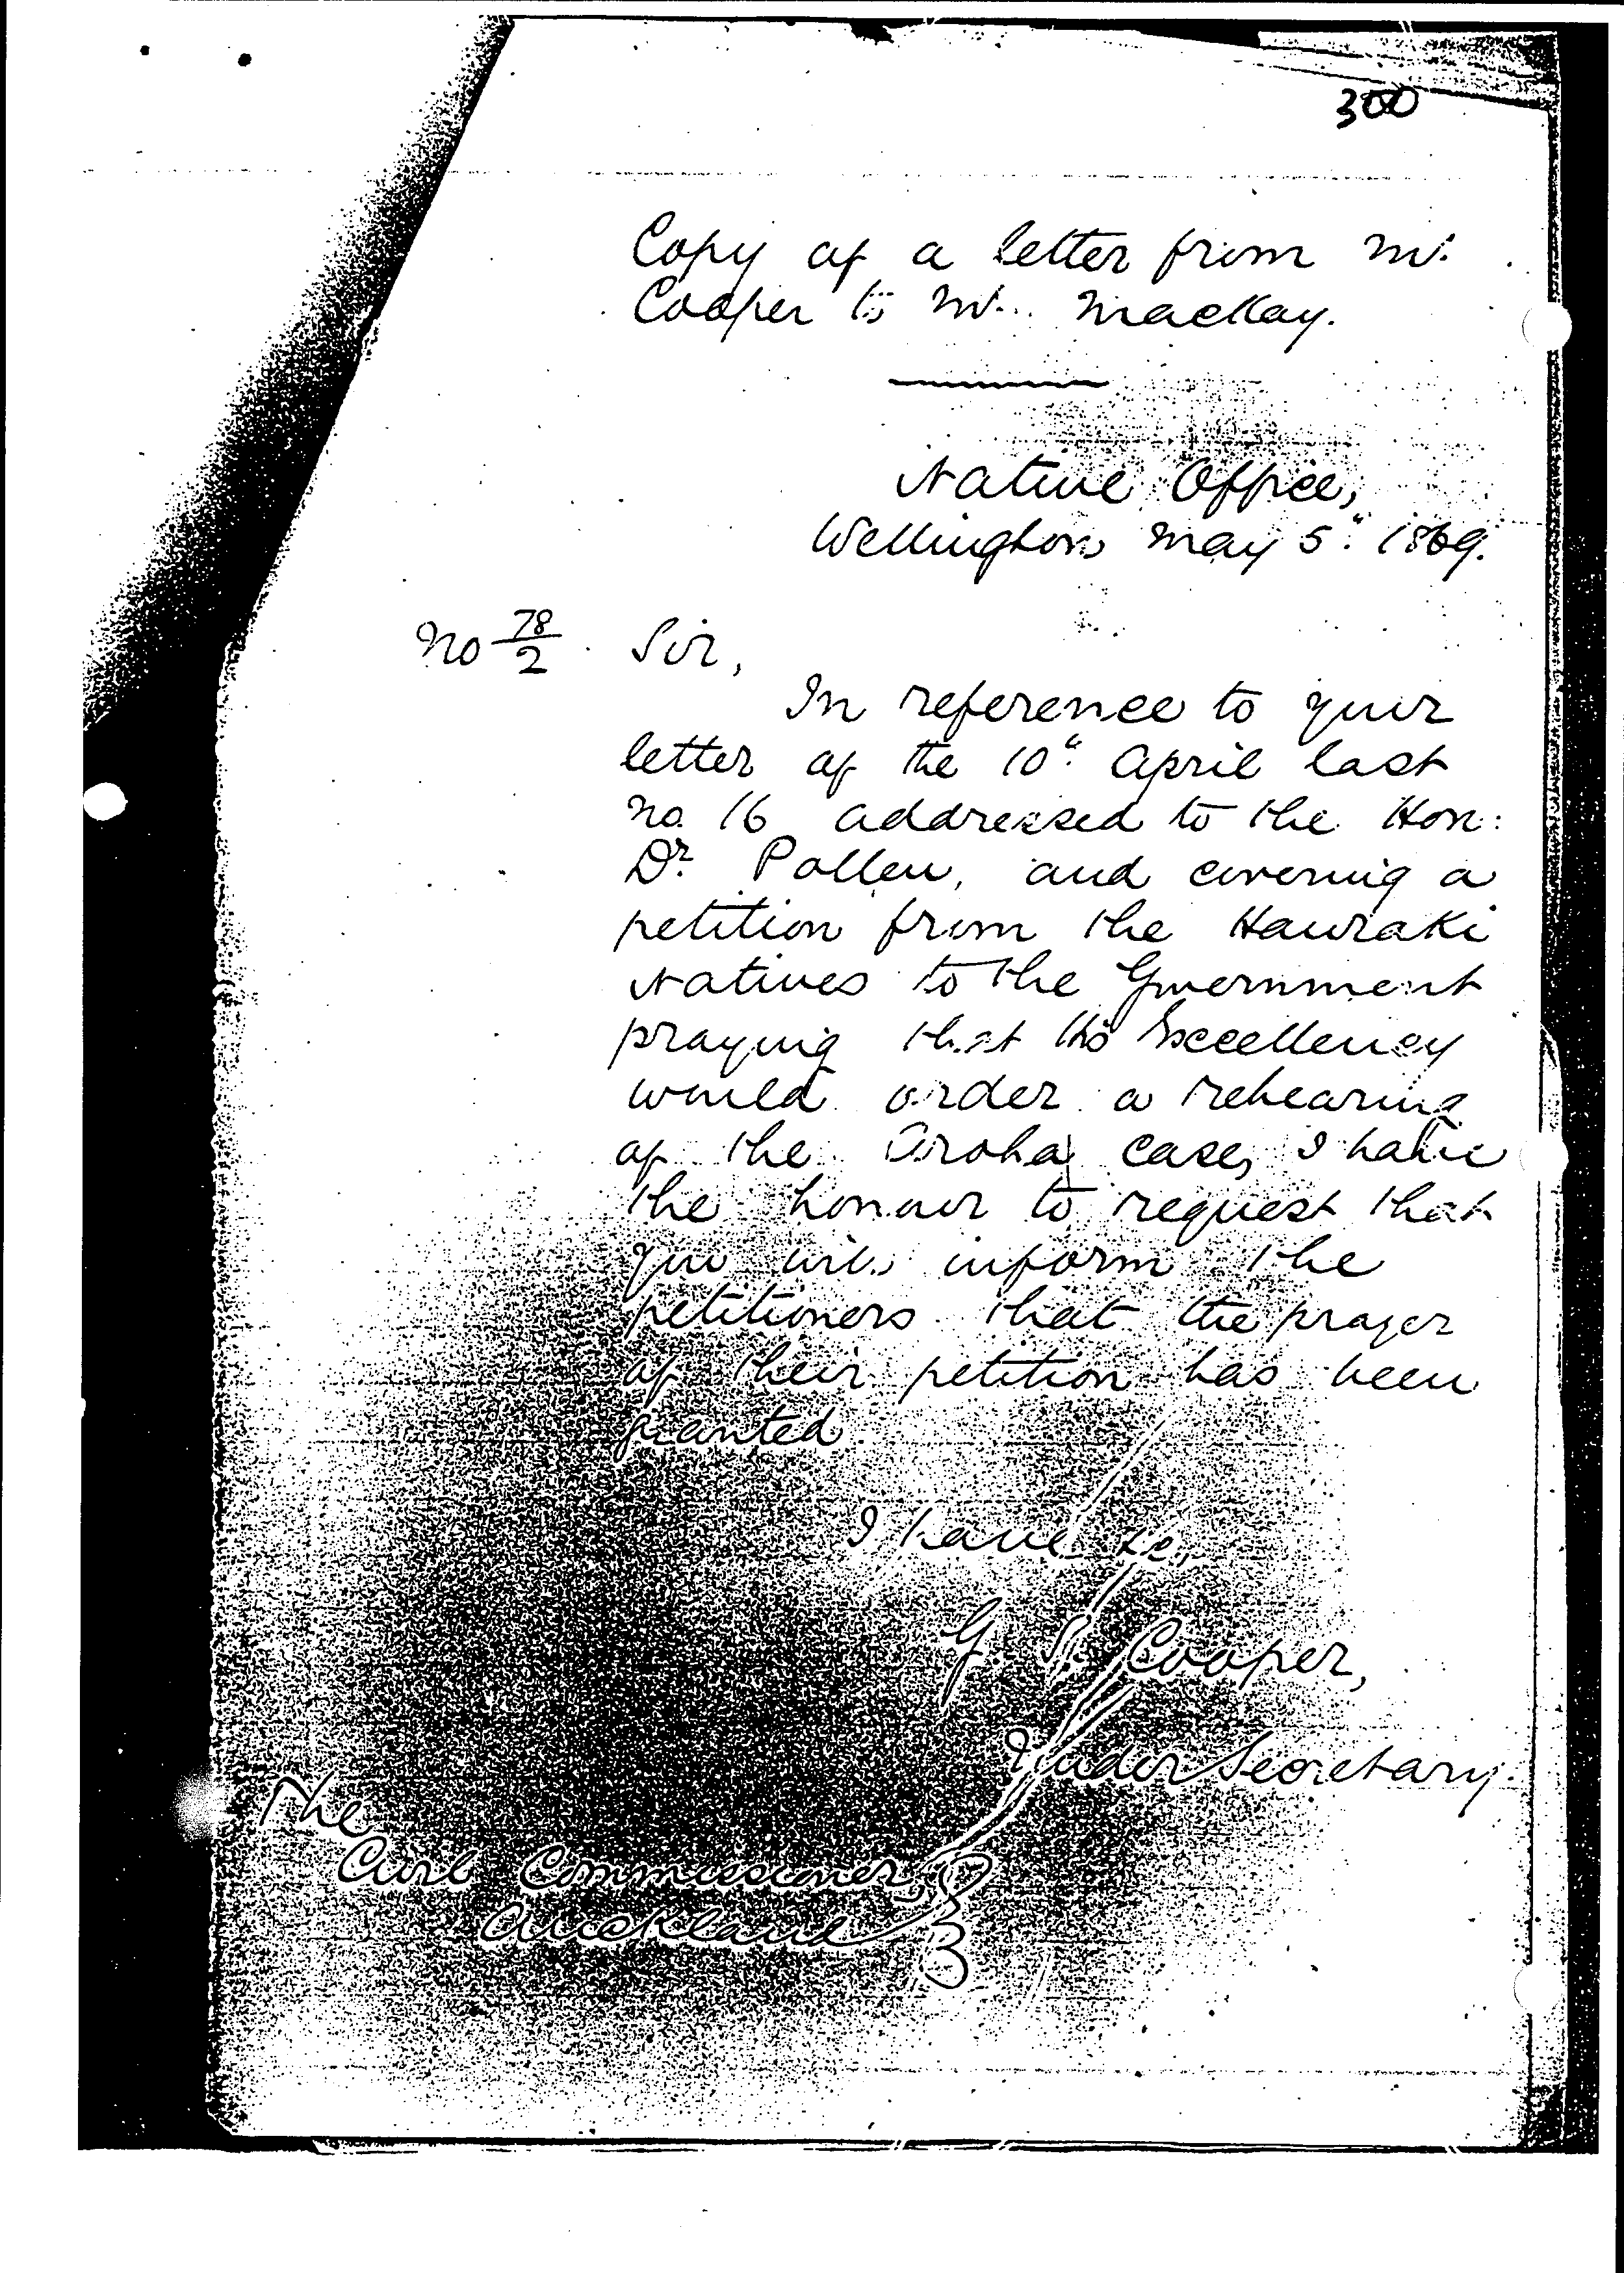 300
Copy of a letter from Mr.
Cooper to Mr. Mackay.
Native Office,
Wellington May 5" 1869.
No 78/2 Sir,
In reference to your
letter of the 10" April last
no. 16 addressed to the Hon:
Dr. Pollen, and covering a
petition from the Hauraki
Natives to the Government
praying that His Excellency
would order a rehearing
of the Aroha case, I have
the honour to request that
you will inform the
petitioners that the prayer
of their petition has been
granted.
I have &c,
G. S. Cooper,
Under Secretary.
The
Civil Commissioner,
Auckland